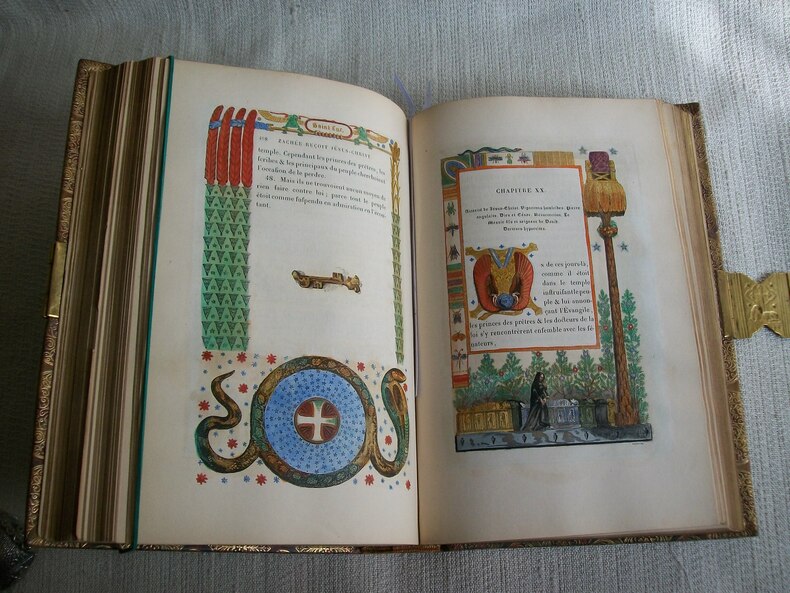 Saint Luc.
ZACHÉE REÇOIT JÉSUS-CHRIST
temple. Cependant les princes des prêtres, les
scribes & les principaux du peuple cherchoient
l'occasion de le perdre.
48. Mais ils ne trouvoient aucun moyen de
rien faire contre lui; parce tout le peuple
étoit comme suspendu en admiration en l'écou
tant.
CHAPITRE XX.
angulaire. Dieu et César. Résurrection. Le
Messie fils et seigneur de David.
Docteurs hypocrites.
x de ces jours-là,
comme il étoit
dans le temple
instruisant le peu
ple & lui annon
çant l'Evangile,
les princes des prêtres & les docteurs de la
loi s'y rencontrèrent ensemble avec les sé-
nateurs,